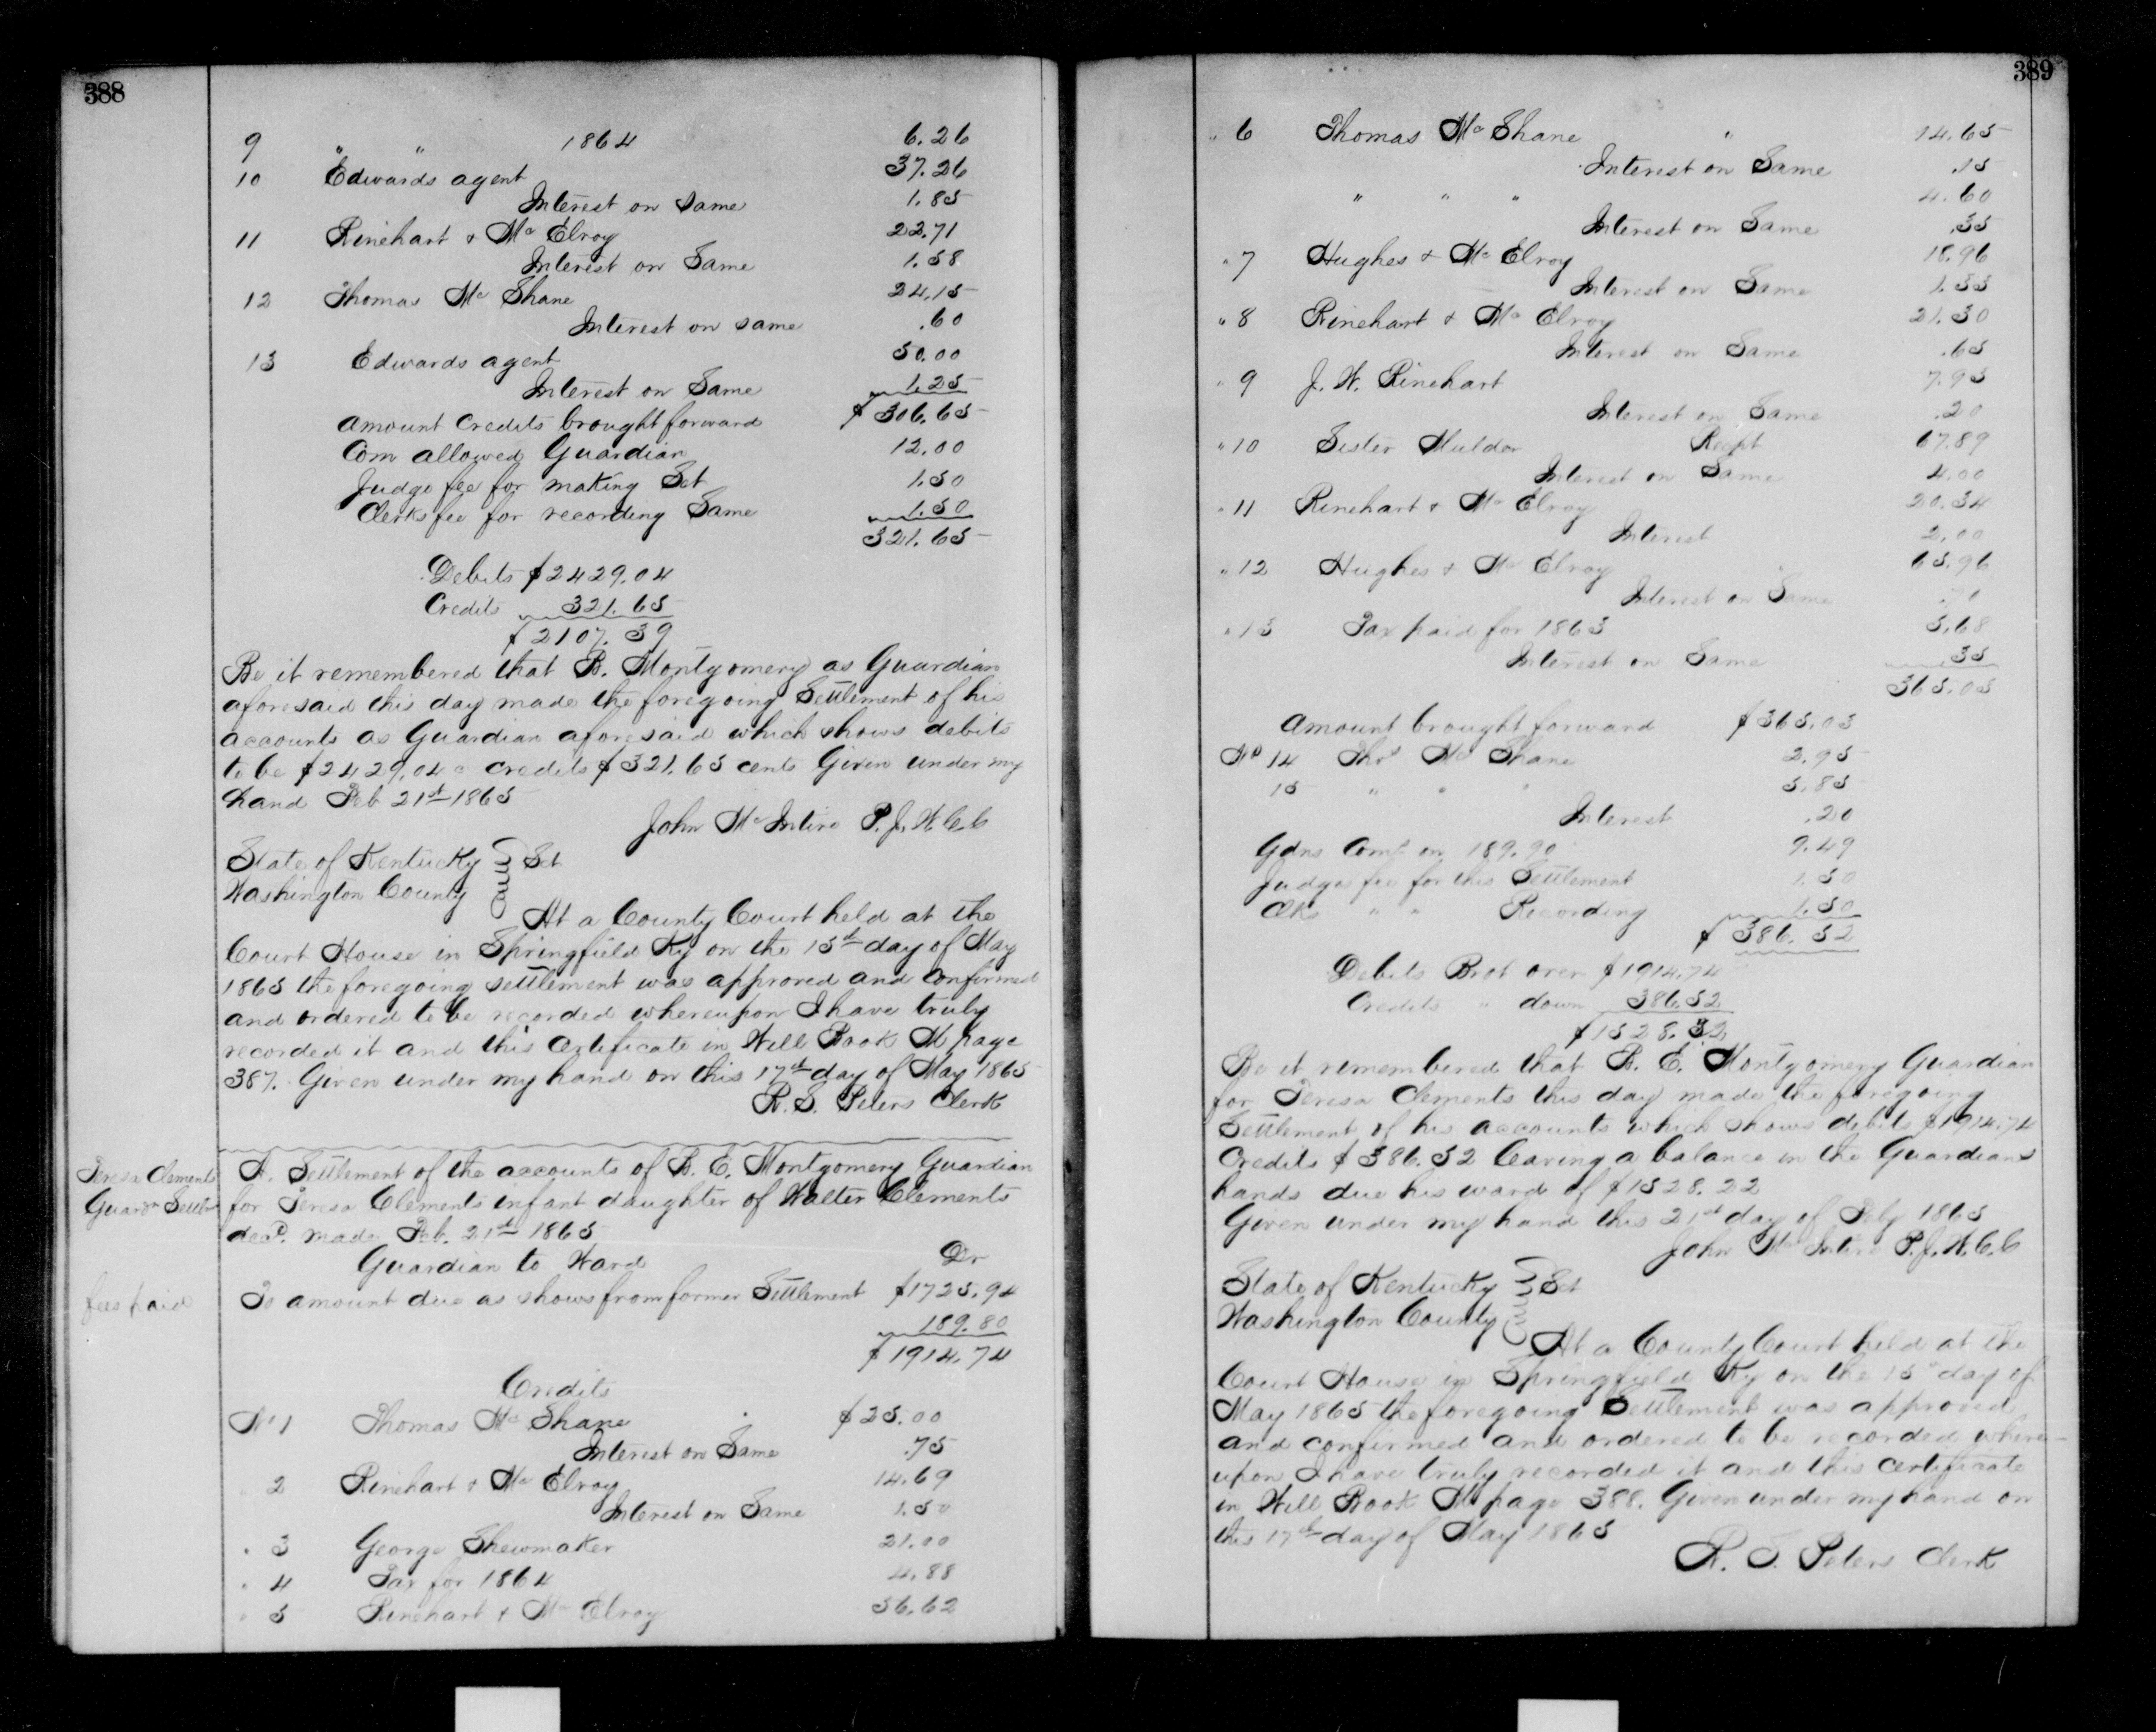 388
9 " " 1864 6.26
10 Edwards agent 37.26
Interest on same 1.85
11 Rinehart & Mc Elroy 22.71
Interest on Same 1.58
12 Thomas Mc Shane 24.15
Interest on same .60
13 Edwards agent 50.00
Interest on Same 1.25
amount credits brought forward $306.65
Com allowed Guardian 12.00
Judge fee for making Set 1.50
Clerks fee for recording Same 1.50
321.65
Debits $2429.04
Credits 321.65
$2107.39
Be it remembered that B. Montgomery as Guardian
aforesaid this day made the foregoing Settlement of his
accounts as Guardian aforesaid which shows debits
to be $2429.04 c credits $321.65 cents Given under my
hand Feb 21st 1865
John Mc Intire P.J.W.C.C
State of Kentucky } Sct
Washington County
At a County Court held at the
Court House in Springfield Ky on the 15th day of May
1865 the foregoing settlement was approved and confirmed
and ordered to be recorded whereupon I have truly
recorded it and this certificate in Will Book M page
387. Given under my hand on this 17th day of May 1865
R. S. Peters Clerk
Teresa Clements
Guardn Settlt
A. Settlement of the accounts of B. E. Montgomery Guardian
for Teresa Clements infant daughter of Walter Clements
decd. made Feb. 21st 1865
Guardian to Ward Dr
fees paid
To amount due as shows from former Settlement $1725.94
189.80
$1914.74
Credits
No 1 Thomas Mc Shane $25.00
Interest on Same .75
" 2 Rinehart & Mc Elroy 14.69
Interest on Same 1.50
" 3 George Shewmaker 21.00
" 4 Tax for 1864 4.88
" 5 Rinehart & Mc Elroy 56.62
389
" 6 Thomas Mc Shane " 14.65
Interest on Same .15
" " " 4.60
Interest on Same .35
" 7 Hughes & Mc Elroy 18.96
Interest on Same 1.55
" 8 Rinehart & Mc Elroy 21.30
Interest on Same .65
" 9 J. W. Rinehart 7.95
Interest on Same .20
" 10 Sister Recpt 67.89
Interest on Same 4.00
" 11 Rinehart & Mc Elroy 20.34
Interest 2.00
" 12 Hughes & Mc Elroy 65.96
Interest on Same .70
" 13 Tax paid for 1863 5.68
Interest on Same .35
365.03
Amount brought forward $365.03
No 14 Thos Mc Shane 2.95
15 " " " 5.85
Interest .20
Gdns Comp on 189.90 9.49
Judges fee for this Settlement 1.50
Clks " " Recording 1.50
$386.52
Debits Brot over $1914.74
Credits " down 386.52
$1528.22
Be it remembered that B. E. Montgomery Guardian
for Teresa Clements this day made the foregoing
Settlement of his accounts which shows debits $1914.74
Credits $386.52 leaving a balance in the Guardians
hands due his ward of $1528.22
Given under my hand this 21st day of Feby 1865
John Mc Intire P.J.W.C.C
State of Kentucky } Sct
Washington County
At a County Court held at the
Court House in Springfield Ky on the 15th day of
May 1865 the foregoing Settlement was approved
and confirmed and ordered to be recorded where-
upon I have truly recorded it and this certificate
in Will Book M page 388. Given under my hand on
this 17th day of May 1865
R. S. Peters Clerk